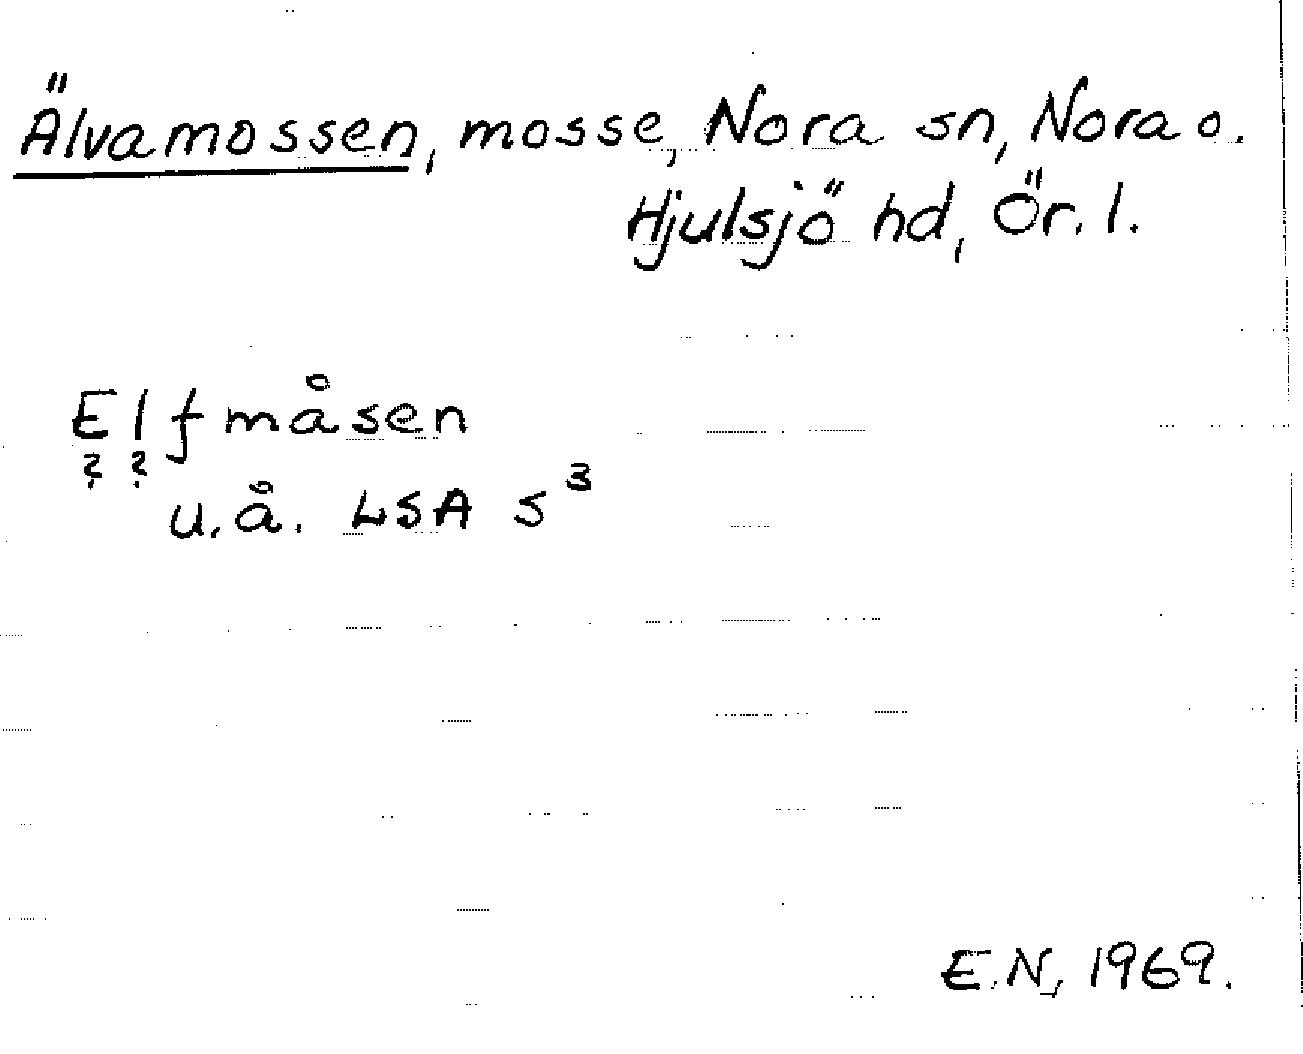 Älvamossen, mosse, Nora sn, Nora o.
Hjulsjö hd, Ör. l.
Elfmåsen
? ?
u.å. LSA s³
E.N., 1969.